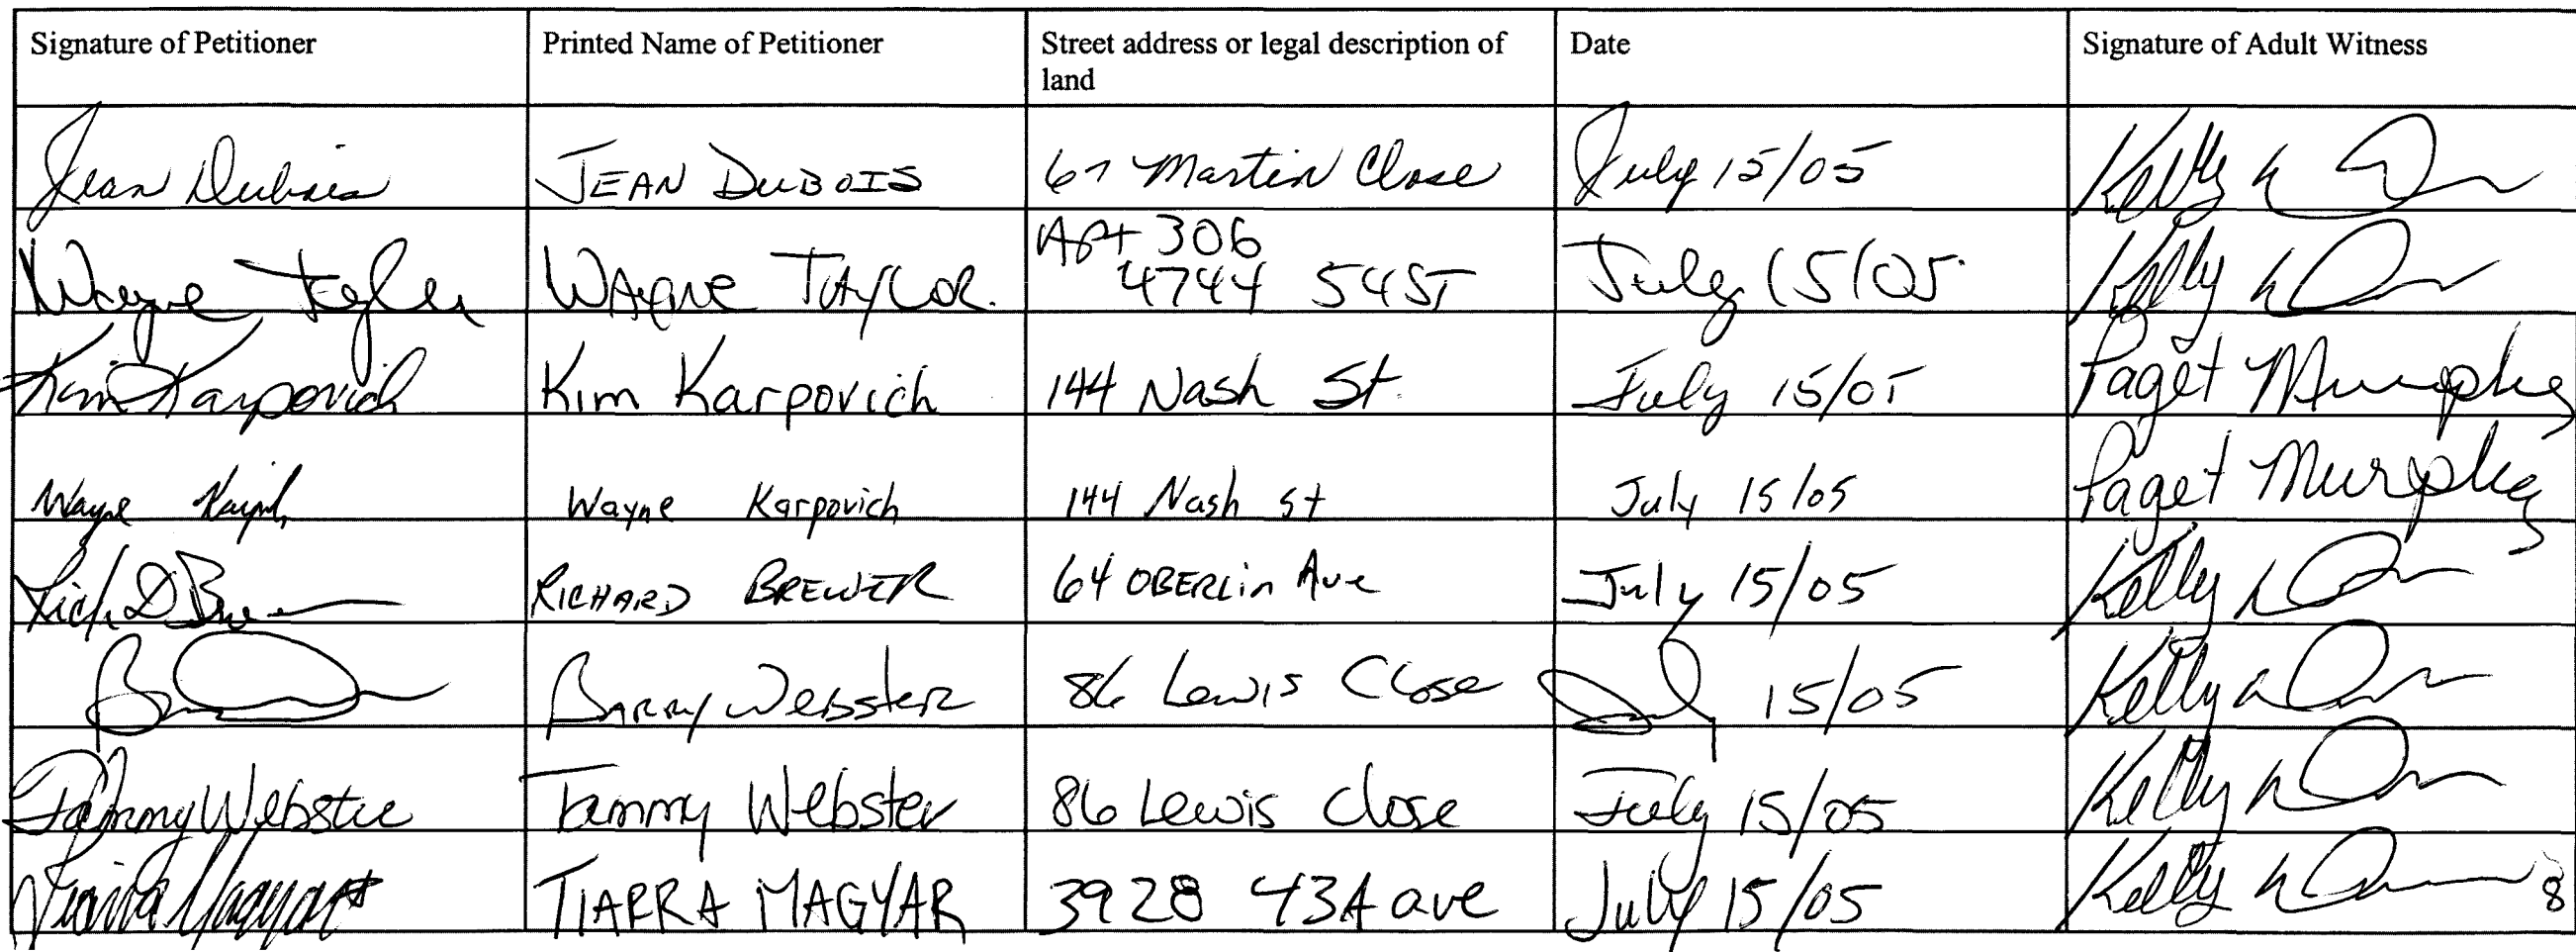 Signature of Petitioner Printed Name of Petitioner Street address or legal description of Date Signature of Adult Witness
land
Jean Dubois JEAN DUBOIS 67 Martin Close July 15/05 Kelly
Apt 306
Wayne Taylor WAYNE TAYLOR. 4744 54ST July 15/05 Kelly
Kim Karpovich Kim Karpovich 144 Nash St. July 15/05 Paget Murphy
Wayne Wayne Karpovich 144 Nash st July 15/05 Paget Murphy
RICHARD BREWER 64 OBERLin Ave July 15/05 Kelly
BARRY WEBSTER 86 Lewis Close July 15/05 Kelly
Tammy Webster Tammy Webster 86 Lewis Close July 15/05 Kelly
Tiarra Magyar TIARRA MAGYAR 3928 43A ave July 15/05 Kelly
8